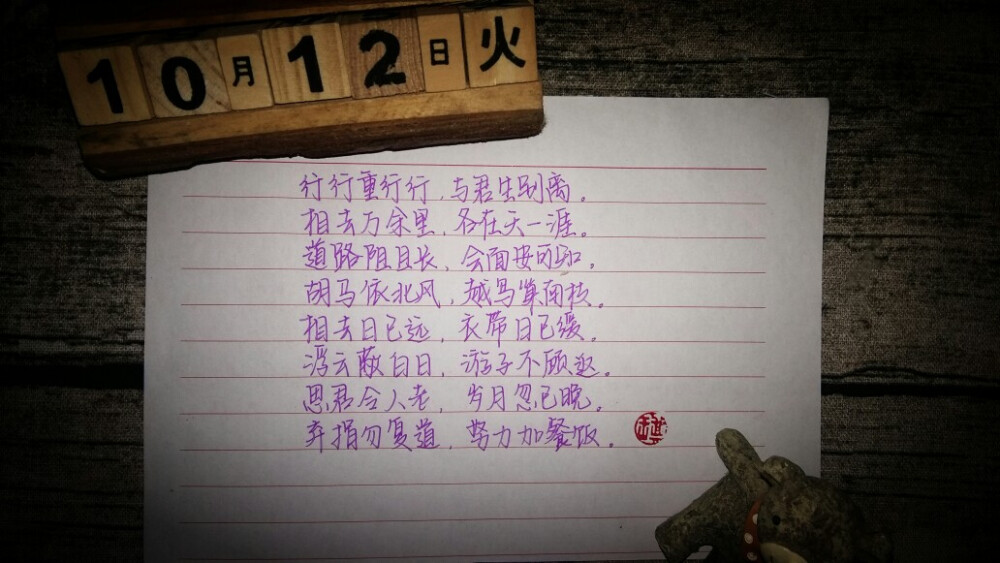 10月12日火
行行重行行,与君生别离。
相去万余里,各在天一涯。
道路阻且长,会面安可知。
胡马依北风,越鸟巢南枝。
相去日已远,衣带日已缓。
浮云蔽白日,游子不顾返。
思君令人老,岁月忽已晚。
弃捐勿复道,努力加餐饭。